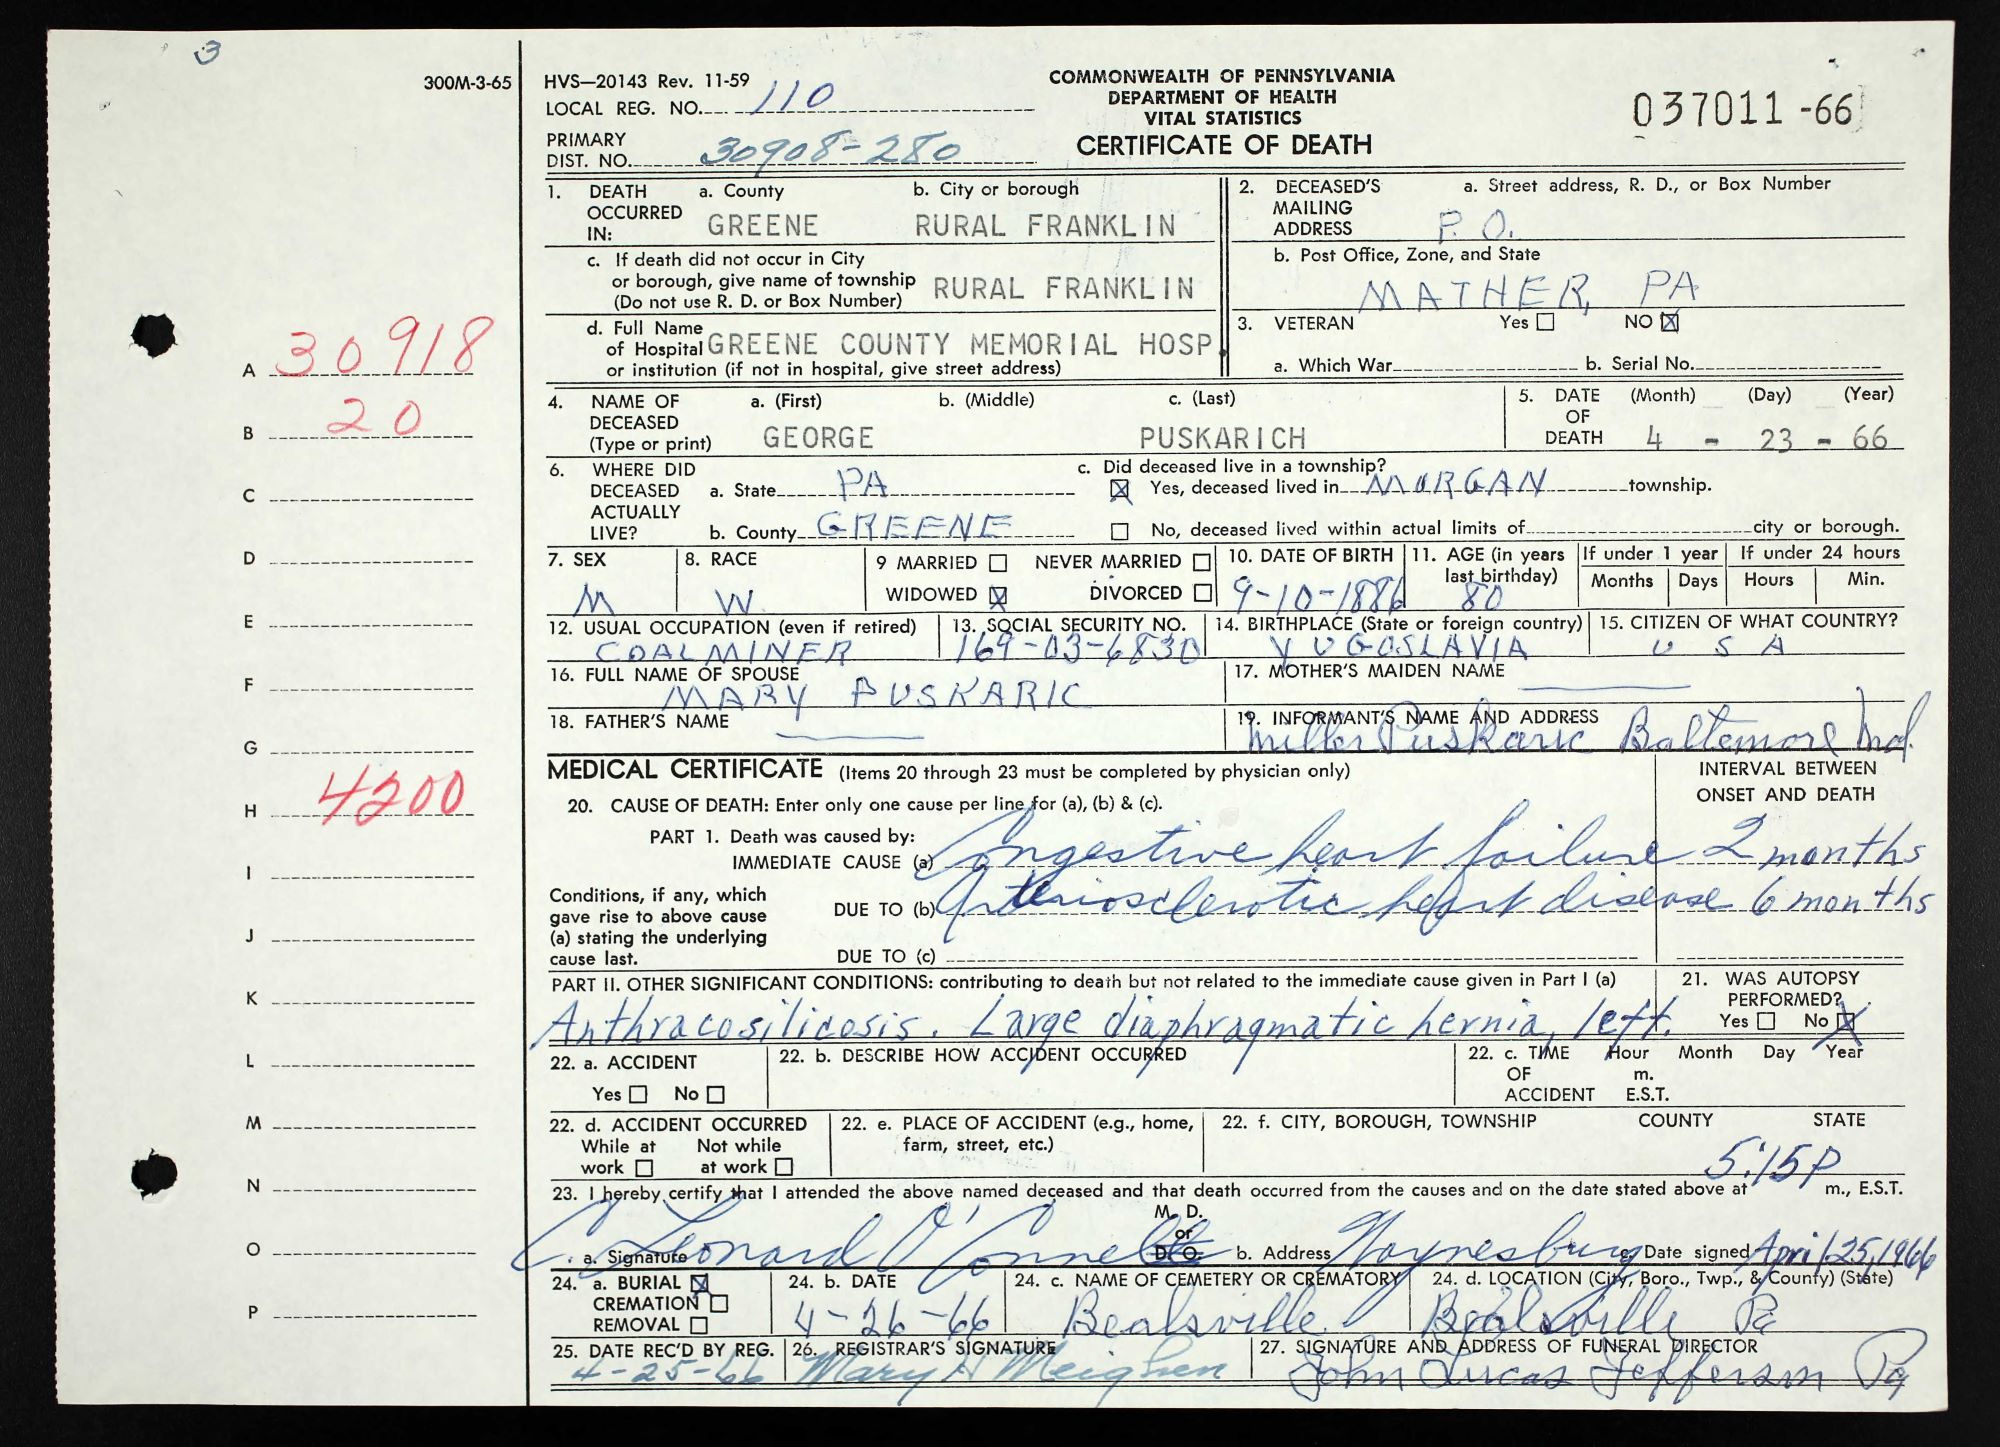 3
300M-3-65
HVS—20143 Rev. 11-59
LOCAL REG. NO. 110
PRIMARY
DIST. NO. 30908-280
COMMONWEALTH OF PENNSYLVANIA
DEPARTMENT OF HEALTH
VITAL STATISTICS
CERTIFICATE OF DEATH
037011-66
1. DEATH OCCURRED IN: a. County GREENE b. City or borough RURAL FRANKLIN
c. If death did not occur in City
or borough, give name of township
(Do not use R. D. or Box Number) RURAL FRANKLIN
d. Full Name
of Hospital GREENE COUNTY MEMORIAL HOSP.
or institution (if not in hospital, give street address)
2. DECEASED'S MAILING ADDRESS a. Street address, R. D., or Box Number
P. O.
b. Post Office, Zone, and State
MATHER, PA
3. VETERAN Yes ☐ NO ☒
a. Which War b. Serial No.
4. NAME OF DECEASED (Type or print) a. (First) b. (Middle) c. (Last)
GEORGE PUSKARICH
5. DATE OF DEATH (Month) (Day) (Year)
4 - 23 - 66
6. WHERE DID DECEASED ACTUALLY LIVE?
a. State PA
b. County GREENE
c. Did deceased live in a township?
☒ Yes, deceased lived in MORGAN township.
☐ No, deceased lived within actual limits of city or borough.
7. SEX M
8. RACE W
9 MARRIED ☐ NEVER MARRIED ☐
WIDOWED ☒ DIVORCED ☐
10. DATE OF BIRTH 9-10-1886
11. AGE (in years last birthday) 80
If under 1 year Months Days
If under 24 hours Hours Min.
12. USUAL OCCUPATION (even if retired) COAL MINER
13. SOCIAL SECURITY NO. 169-03-6830
14. BIRTHPLACE (State or foreign country) YUGOSLAVIA
15. CITIZEN OF WHAT COUNTRY? U S A
16. FULL NAME OF SPOUSE MARY PUSKARIC
17. MOTHER'S MAIDEN NAME
18. FATHER'S NAME
19. INFORMANT'S NAME AND ADDRESS Puskaric Baltemore Md.
MEDICAL CERTIFICATE (Items 20 through 23 must be completed by physician only)
INTERVAL BETWEEN
ONSET AND DEATH
20. CAUSE OF DEATH: Enter only one cause per line for (a), (b) & (c).
PART 1. Death was caused by:
IMMEDIATE CAUSE (a) Congestive heart failure 2 months
Conditions, if any, which
gave rise to above cause
(a) stating the underlying
cause last.
DUE TO (b) Arteriosclerotic heart disease 6 months
DUE TO (c)
PART II. OTHER SIGNIFICANT CONDITIONS: contributing to death but not related to the immediate cause given in Part I (a)
Anthracosilicosis. Large diaphragmatic hernia, left.
21. WAS AUTOPSY
PERFORMED?
Yes ☐ No ☒
22. a. ACCIDENT
Yes ☐ No ☐
22. b. DESCRIBE HOW ACCIDENT OCCURRED
22. c. TIME OF ACCIDENT Hour Month Day Year
m.
E.S.T.
22. d. ACCIDENT OCCURRED
While at work ☐ Not while at work ☐
22. e. PLACE OF ACCIDENT (e.g., home,
farm, street, etc.)
22. f. CITY, BOROUGH, TOWNSHIP COUNTY STATE
23. I hereby certify that I attended the above named deceased and that death occurred from the causes and on the date stated above at 5:15 P m., E.S.T.
a. Signature C. Leonard O'Connell M. D. or D. O. b. Address Waynesburg c. Date signed April 25, 1966
24. a. BURIAL ☒
CREMATION ☐
REMOVAL ☐
24. b. DATE 4-26-66
24. c. NAME OF CEMETERY OR CREMATORY Bealsville
24. d. LOCATION (City, Boro., Twp., & County) (State) Bealsville Pa
25. DATE REC'D BY REG. 4-25-66
26. REGISTRAR'S SIGNATURE Mary H Meighen
27. SIGNATURE AND ADDRESS OF FUNERAL DIRECTOR
John Lucas Jefferson Pa
A 30918
B 20
C
D
E
F
G
H 4200
I
J
K
L
M
N
O
P